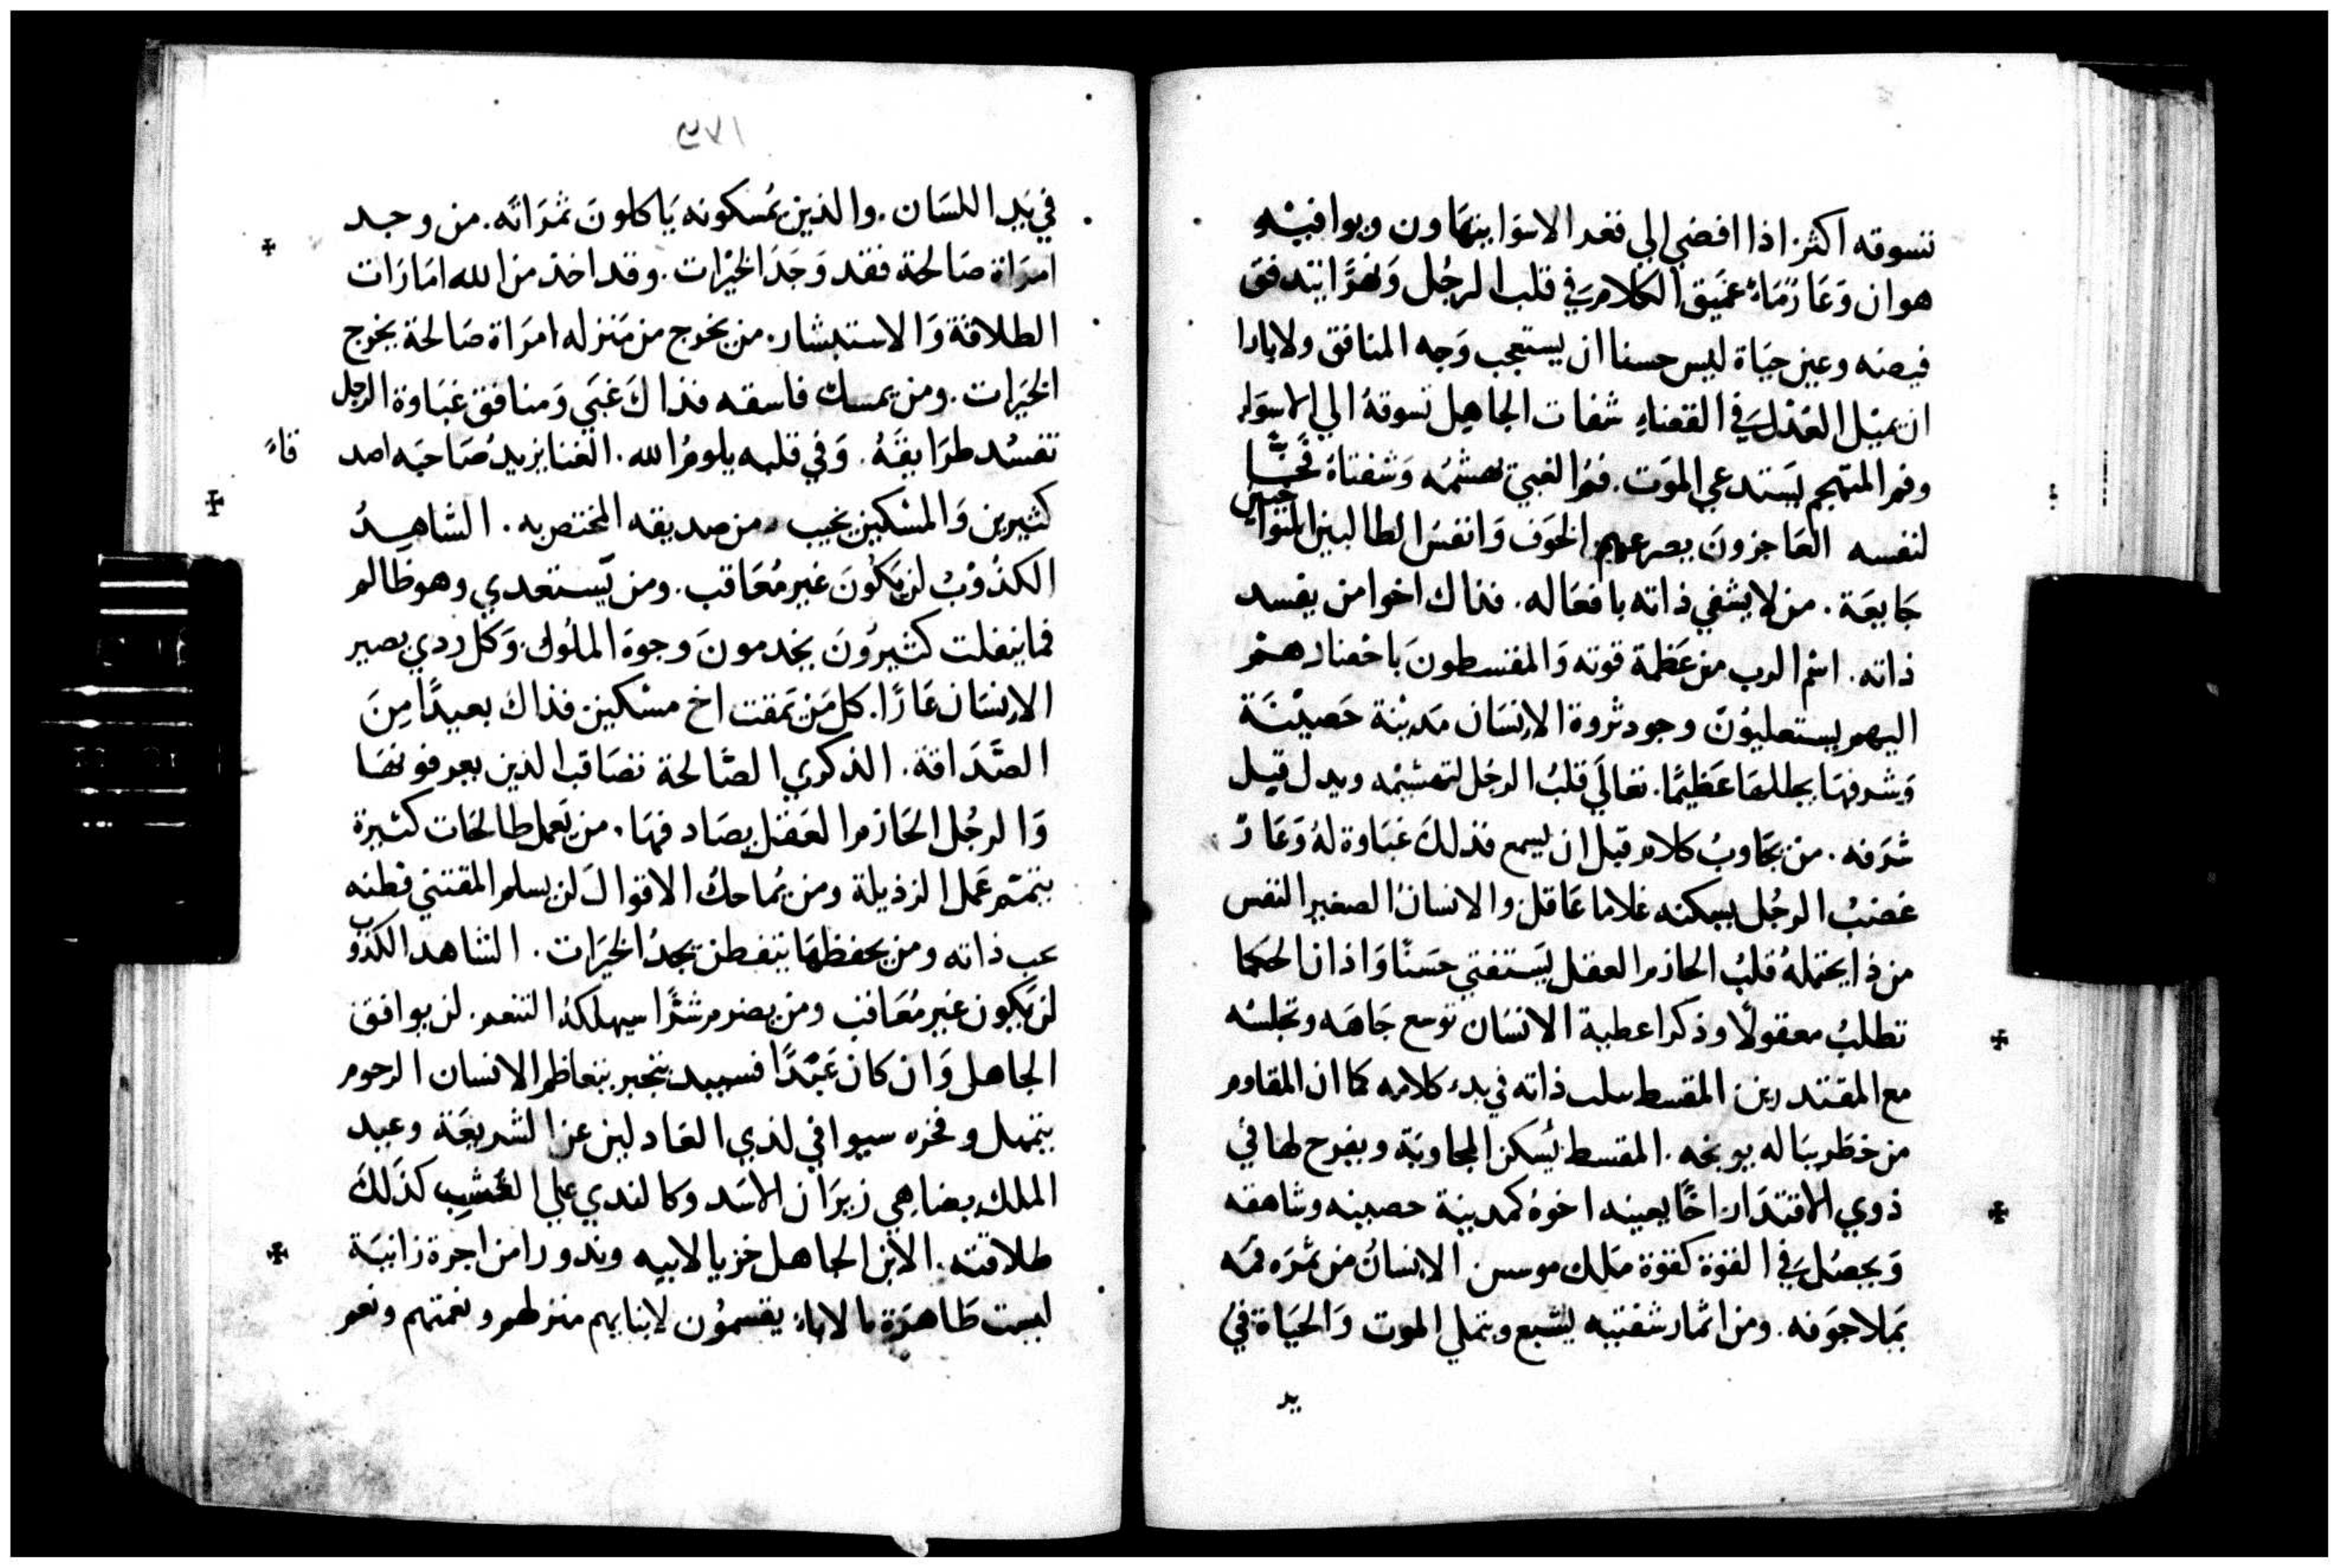 تسوقه اكثر اذا افضي الي قعر الاسوا يتهاون ويوافيه
هوان وَعَارًمَاءُ عميَق الكلامرَ في قلب الرجُل وَنهرًا يتدفق
فيضه وعين حيَاة ليس حسنا ان يستعجب وَجه المنافق ولا بارا
ان يميْل العَدْل في القضاءِ شفات الجاهِل تسوقهُ الي الاسوَاء
وفم المتهجم يَستدعي الموَت. فمُ الغبيّ تهشمُه وَشفتاهُ فخًّا
لنفسه العَاجزونَ يصرعهم الخوَف وَانفسُ الطالبين التواخيْ
جَايعَة. من لا يشفي ذاته بافعَاله. فذاك اخوا من يفسد
ذاته. اسْم الرب من عَظمة قوته وَالمقسطونَ باحْضارهمْ
اليهم يستعليوْن وجود ثروة الانسَان مَديْنة حَصيْنَة
وَشرفهَا يجللهَا عَظيْمًا. تعَالَي قلبُ الرجُل لتهشمْه ويدل قبل
شرَفه. من يجَاوبُ كلام قبل ان يسمع فذلكَ غبَاوة لهُ وَعَارً
غضبُ الرجُل يسكنه غلاما عَاقل والانسانُ الصغير النفس
من ذا يحتملهُ قلبُ الحازم العقل يَستفتي حسَنًا وَاذان الحكما
تطلبُ معقولًا وذكرا عطية الانسَان توسع جَاهَه وتجلسُه
مع المقتدرين المقسط سلب ذاته في بدء كلامه كما ان المقاوم
من خطَر بَاله يوبخه. المقسط يُسكن المجاوبَة ويفرح لها في
ذوي الاقتدَار اخًا يعينه اخوهُ كمدينة حصينه وشاهقه
وَيحصُل في القوّة كقوة مَلك موسس الانسانُ من ثمرَه فمَه
يَملا جوَفه. ومن اثمار شفتيه يشبع ويتملي الموت وَالحيَاة فيْ
يد
٤٧١
في يَد اللسَان. والذين يمُسكونه يَاكلونَ ثمرَاته. من وجد
امرَاة صَالحة فقد وَجَدَ الخيْرات. وقد اخذ من الله امَارَات
الطلاقة وَالاستبشار. من يخرج من مَنزله امرَاة صَالحة يخرج
الخيَرات. ومن يمسك فاسقه فذاكَ غبَي وَمنافق غبَاوة الرجل
تفسُد طرَايقَهُ. وَفي قلبه يلومُ الله. الغنا يزيدُ صَاحبَه اصد
قاءً
كثيرين وَالمسْكين يخيب من صديقه المختص به. الشاهِدُ
الكذُوْبُ لن يكُونَ غير مُعَاقب. ومن يَستعدي وهو ظالم
فما ينفلت كثيرُونَ يخدمونَ وجوهَ الملُوك وَكل ردي يصير
الانسَان عَارًا. كل مَنْ يمَقت اخ مسْكين فذاكَ بعيدًا مِنَ
الصَّدَاقة. الذكري الصَّالحة تصَاقب الذين يعرفونهَا
وَالرجُل الحَازم العَقل يصَادفهَا. من يَعمل طالحَات كثيرة
يتممْ عَمل الرذيلة ومن يُماحكُ الاقوالَ لن يسلم المقتني فطنه
يحب ذاته ومن يحفظهَا يتفطن يجدُ الخيَرات. الشاهد الكذوب
لن يَكون غير مُعَاقب ومن يضرم شرًا سيهلكهُ التنعم. لن يوافق
الجاهل وَان كان عَبْدًا فسيبد بتجبر يتعاظم الانسان الرحوم
يتمهل وفخره سيوافي لذي العَادلين عن الشريعَة وعيد
الملك يضاهِي زيرَان الاسَد وَكالندي علي العُشبِ كذَلكَ
طلاقته. الابن الجاهل خزيا لابيه ونذورا من اجرة زانيَة
ليست طَاهرَة الابَاءُ يقسمُون لابنايهم منزلهم ونعمتهم ونعم